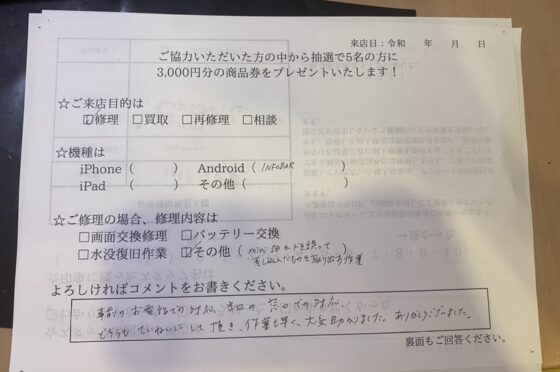 来店日：令和　年　月　日
ご協力いただいた方の中から抽選で5名の方に
3,000円分の商品券をプレゼントいたします！
☆ご来店目的は
☑修理 □買取 □再修理 □相談
☆機種は
iPhone（　） Android（INFOBAR　）
iPad（　） その他（　）
☆ご修理の場合、修理内容は
□画面交換修理 □バッテリー交換
□水没復旧作業 ☑その他（mini SIMカードを誤って
差し込んだものを取り出す作業）
よろしければコメントをお書きください。
事前のお電話での対応、当日の窓口での対応、
どちらもていねいにして頂き、作業も早く、大変助かりました。ありがとうございました。
裏面もご回答ください。